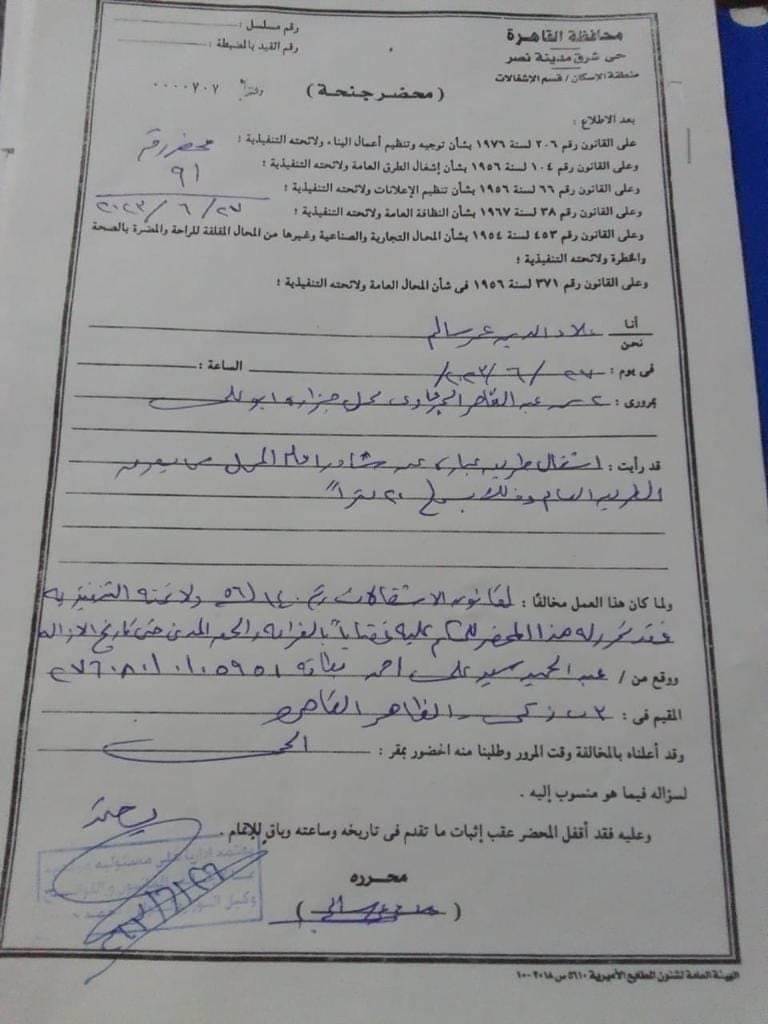 محافظة القاهرة
حى شرق مدينة نصر
منطقة الإسكان / قسم الإشغالات
رقم مسلسل :
رقم القيد بالمضبطة :
( محضر جنحة )
٠٠٠٠٧٠٧
بعد الاطلاع :
على القانون رقم ٢٠٦ لسنة ١٩٧٦ بشأن توجيه وتنظيم أعمال البناء ولائحته التنفيذية ؛
وعلى القانون رقم ١٠٤ لسنة ١٩٥٦ بشأن إشغال الطرق العامة ولائحته التنفيذية ؛
وعلى القانون رقم ٦٦ لسنة ١٩٥٦ بشأن تنظيم الإعلانات ولائحته التنفيذية ؛
وعلى القانون رقم ٣٨ لسنة ١٩٦٧ بشأن النظافة العامة ولائحته التنفيذية ؛
وعلى القانون رقم ٤٥٣ لسنة ١٩٥٤ بشأن المحال التجارية والصناعية وغيرها من المحال المقلقة للراحة والمضرة بالصحة
والخطرة ولائحته التنفيذية ؛
وعلى القانون رقم ٣٧١ لسنة ١٩٥٦ فى شأن المحال العامة ولائحته التنفيذية ؛
محضر رقم
٩١
٢٧ / ٦ / ٢٠٢٣
أنا
نحن
علاء الدين عمر سالم
فى يوم : ٢٧ / ٦ / ٢٠٢٣ الساعة :
بمرورى : ٢ ش عبد القاهر الجرجاوى محل جزارة ابو على
قد رأيت : اشغال طريق عبارة عن أمام المحل
الطريق العام وذلك ٢٠ مترا
ولما كان هذا العمل مخالفًا : لقانون الاشغالات رقم ١٤٠ / ٥٦ ولائحته التنفيذية
فقد تحرر له هذا المحضر للحكم عليه غيابيا بالغرامة والحق المدنى حتى تاريخ الازالة
ووقع من / عبد الحميد سيد على احمد بطاقة ٢٧٦٠٨٠١٠١٠٥٩٥١
المقيم فى : ٣ زكى الظاهر القاهرة
وقد أعلناه بالمخالفة وقت المرور وطلبنا منه الحضور بمقر : الحى
لسؤاله فيما هو منسوب إليه .
وعليه فقد أقفل المحضر عقب إثبات ما تقدم فى تاريخه وساعته وباق للإتمام .
محرره
الهيئة العامة لشئون المطابع الأميرية ٥٦١٠ س ٢٠١٨ - ١٠٠